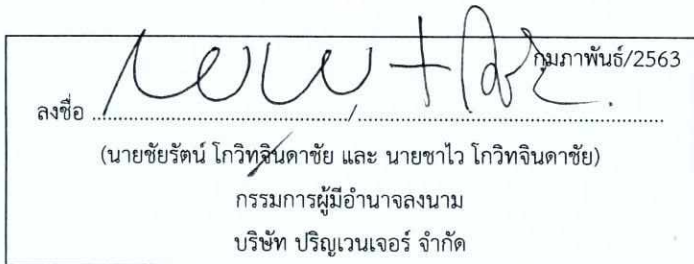 กุมภาพันธ์/2563
ลงชื่อ ............................................/.....................................................
(นายชัยรัตน์ โกวิทจินดาชัย และ นายชาไว โกวิทจินดาชัย)
กรรมการผู้มีอำนาจลงนาม
บริษัท ปริญเวนเจอร์ จำกัด